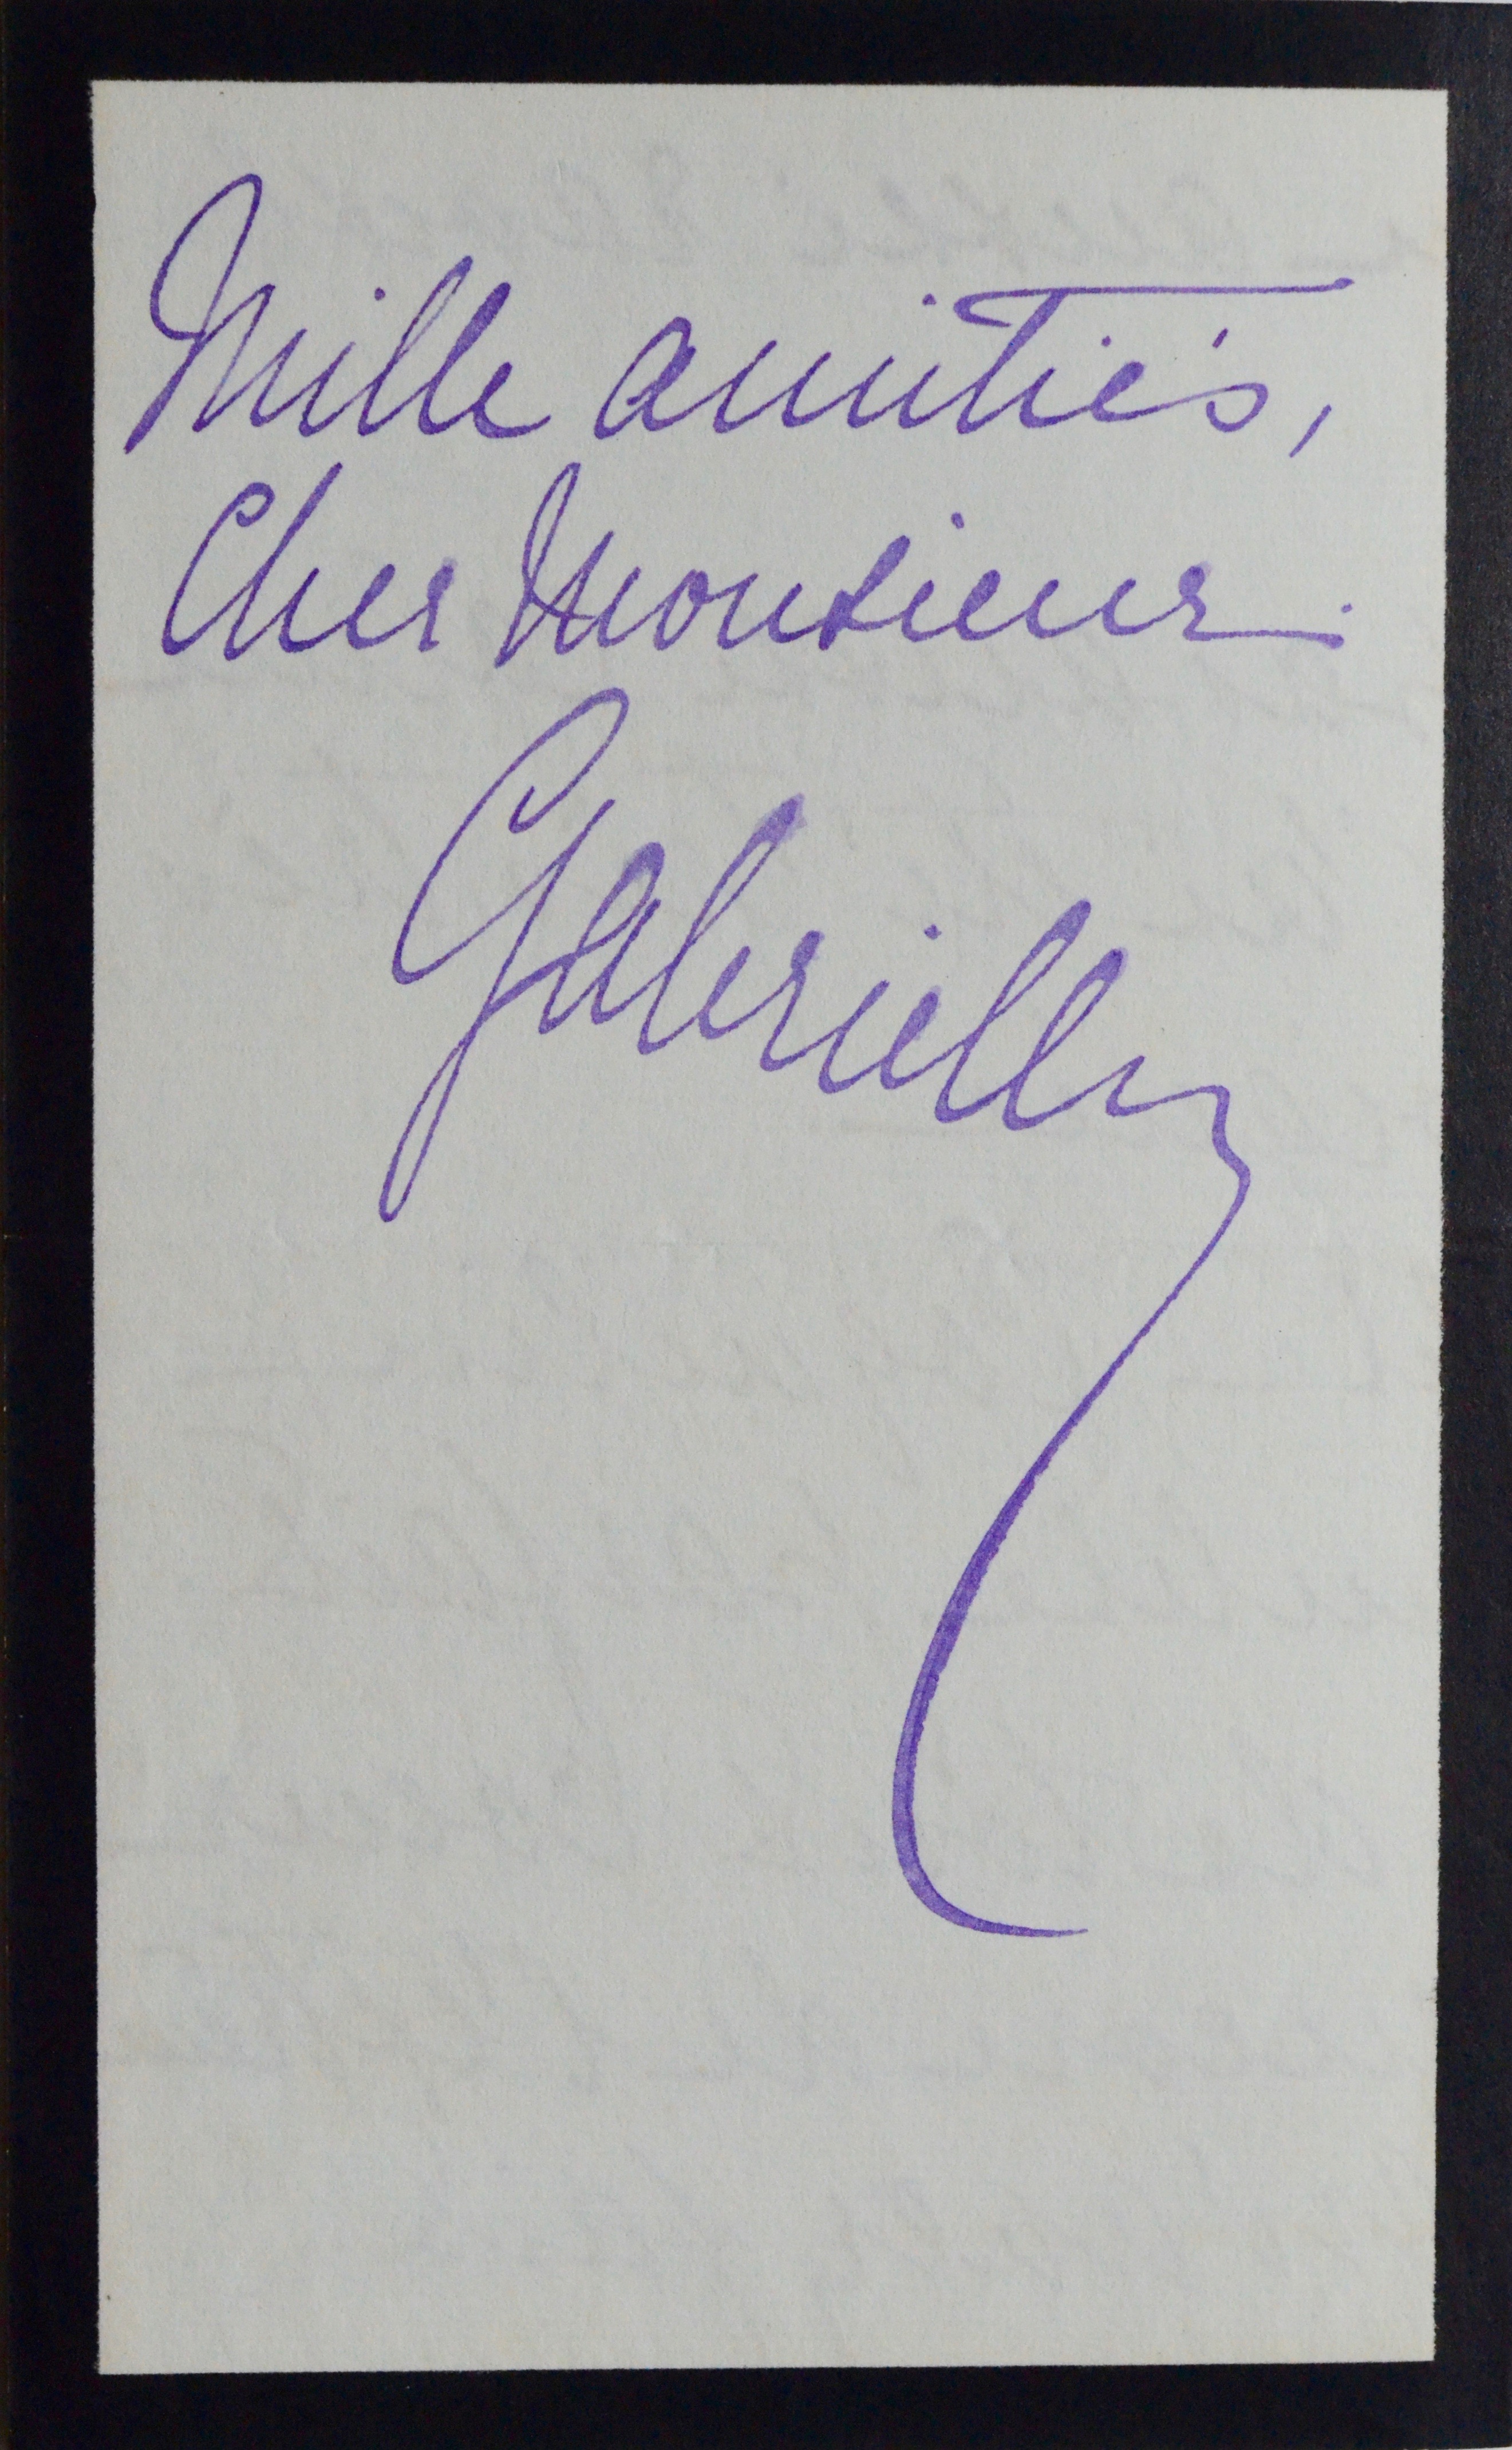 Mille amitiés,
Cher Monsieur.
Gabrielle